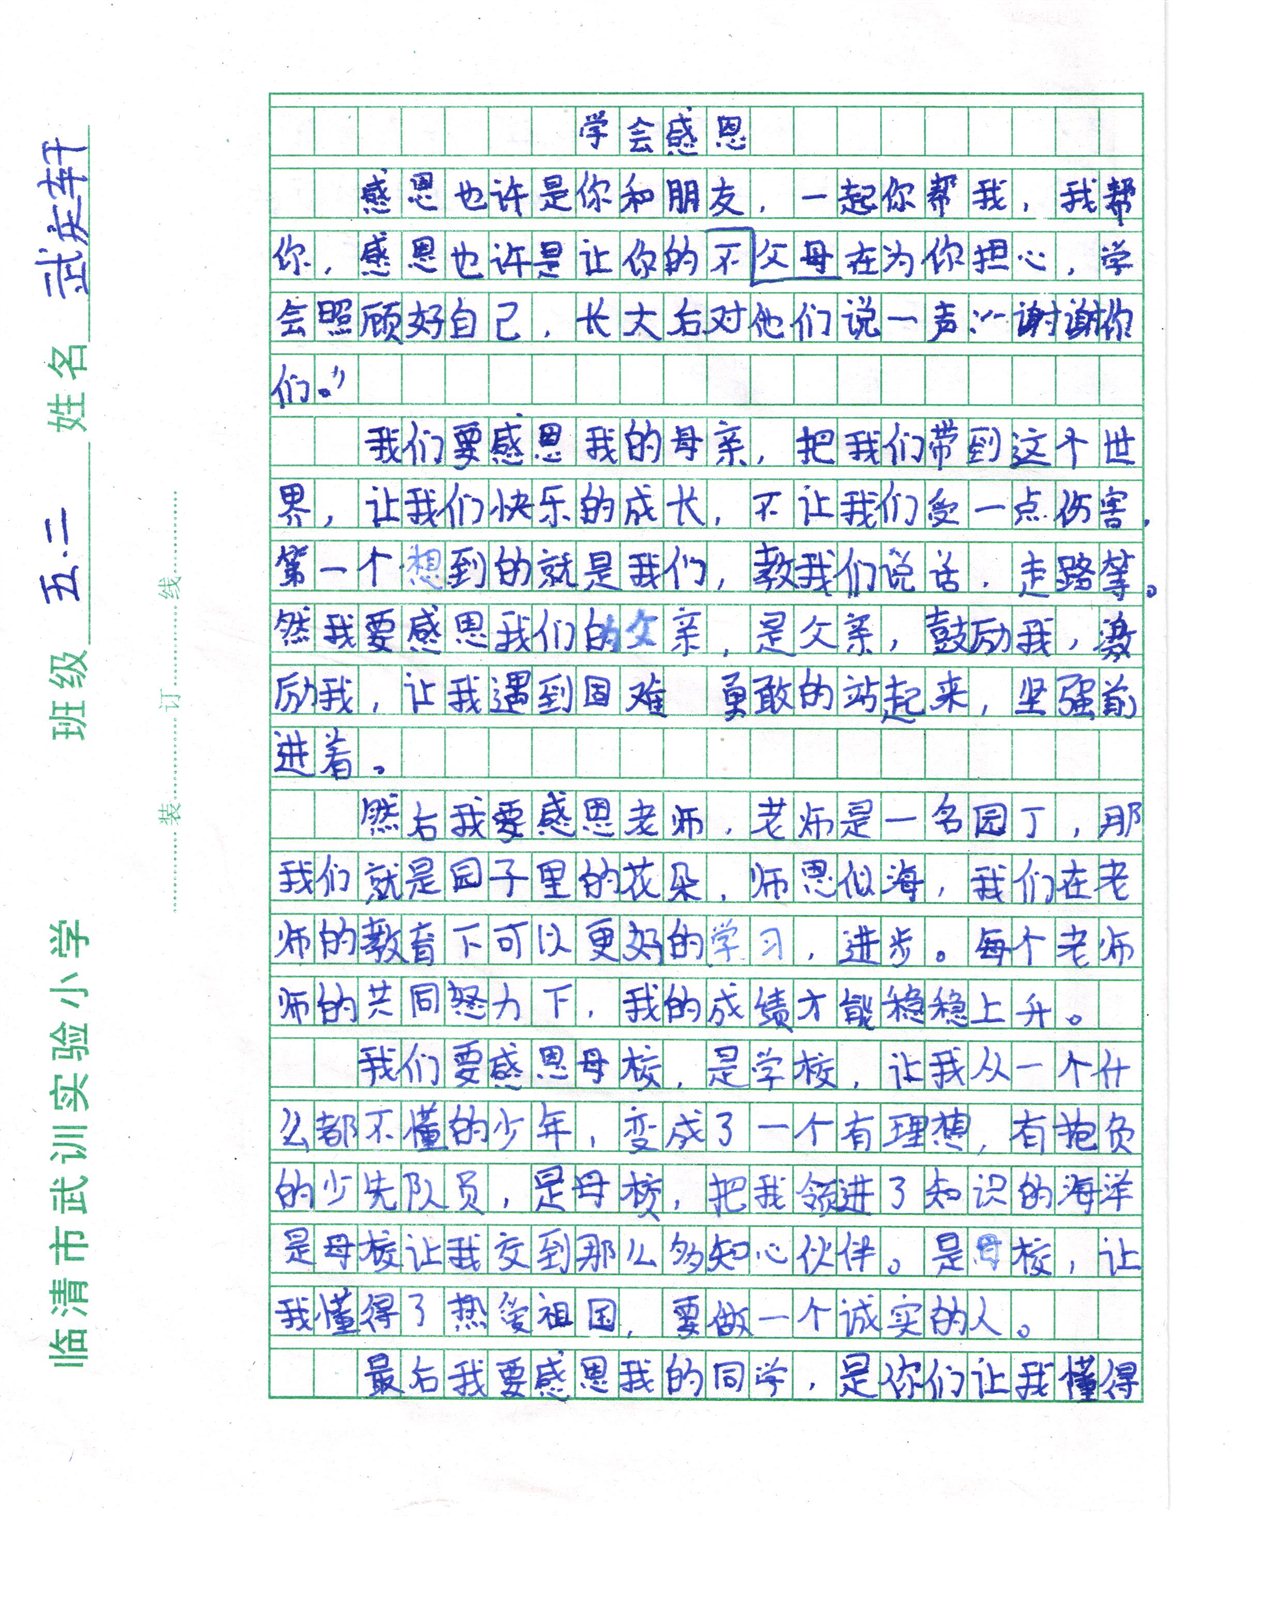 学会感恩
感恩也许是你和朋友，一起你帮我，我帮
你，感恩也许是让你的不父母在为你担心，学
会照顾好自己，长大后对他们说一声：“谢谢你
们。”
我们要感恩我的母亲，把我们带到这个世
界，让我们快乐的成长，不让我们受一点伤害，
第一个想到的就是我们，教我们说话，走路等。
然我要感恩我们的父亲，是父亲，鼓励我，激
励我，让我遇到困难 勇敢的站起来，坚强前
进着。
然后我要感恩老师，老师是一名园丁，那
我们就是园子里的花朵，师恩似海，我们在老
师的教育下可以更好的学习，进步。每个老师
师的共同努力下，我的成绩才能稳稳上升。
我们要感恩母校，是学校，让我从一个什
么都不懂的少年，变成了一个有理想，有抱负
的少先队员，是母校，把我领进了知识的海洋
是母校让我交到那么多知心伙伴。是母校，让
我懂得了热爱祖国，要做一个诚实的人。
最后我要感恩我的同学，是你们让我懂得
临清市武训实验小学 班级 五.二 姓名 武奕轩
装 订 线